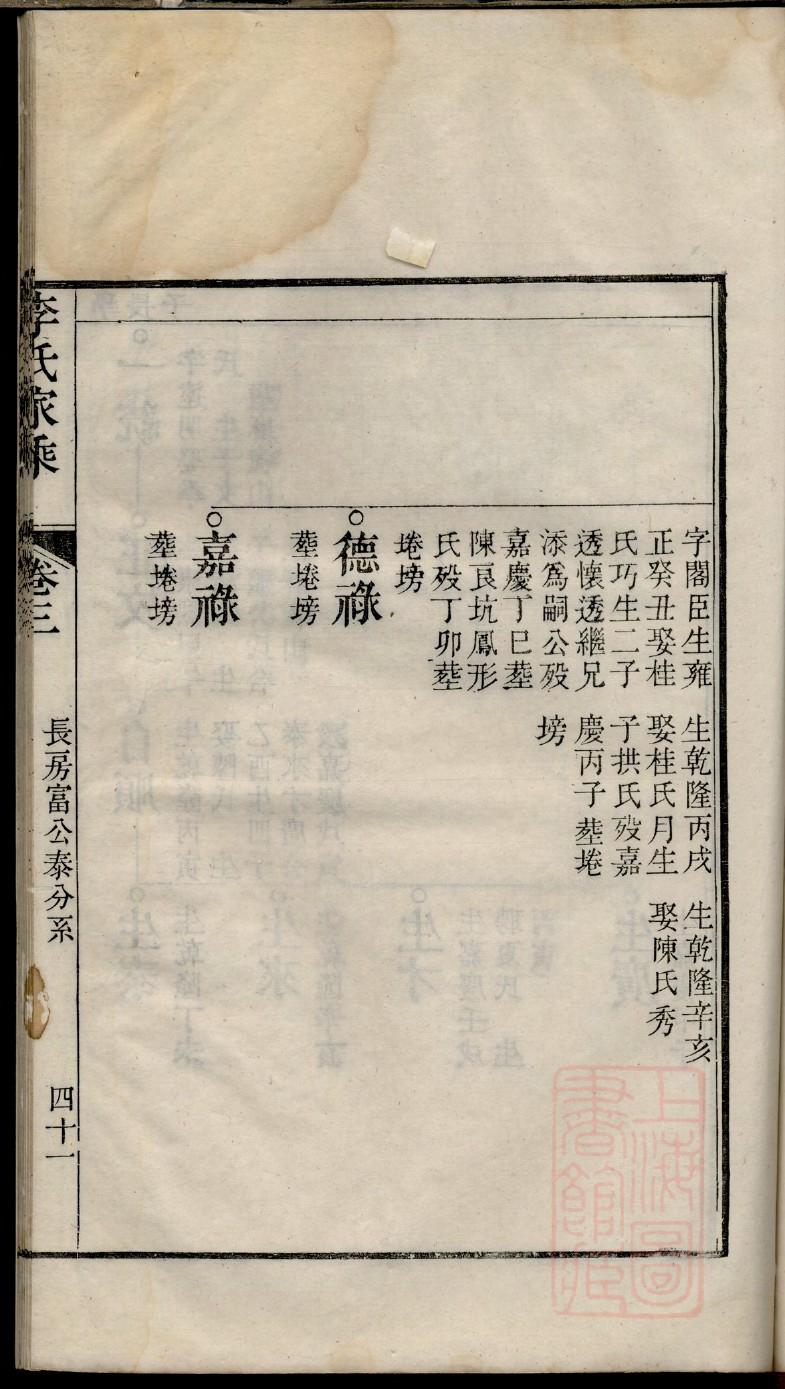 字閣臣生雍
正癸丑娶桂
氏巧生二子
透懷透繼兄
添爲嗣公殁
嘉慶丁巳塟
陳良坑鳳形
氏殁丁卯塟
埢塝
生乾隆丙戌
娶桂氏月生
子拱氏殁嘉
慶丙子塟埢
塝
生乾隆辛亥
娶陳氏秀
德祿
塟埢塝
嘉祿
塟埢塝
李氏家乘
卷三
長房富公泰分系
四十一
上海圖
書館藏